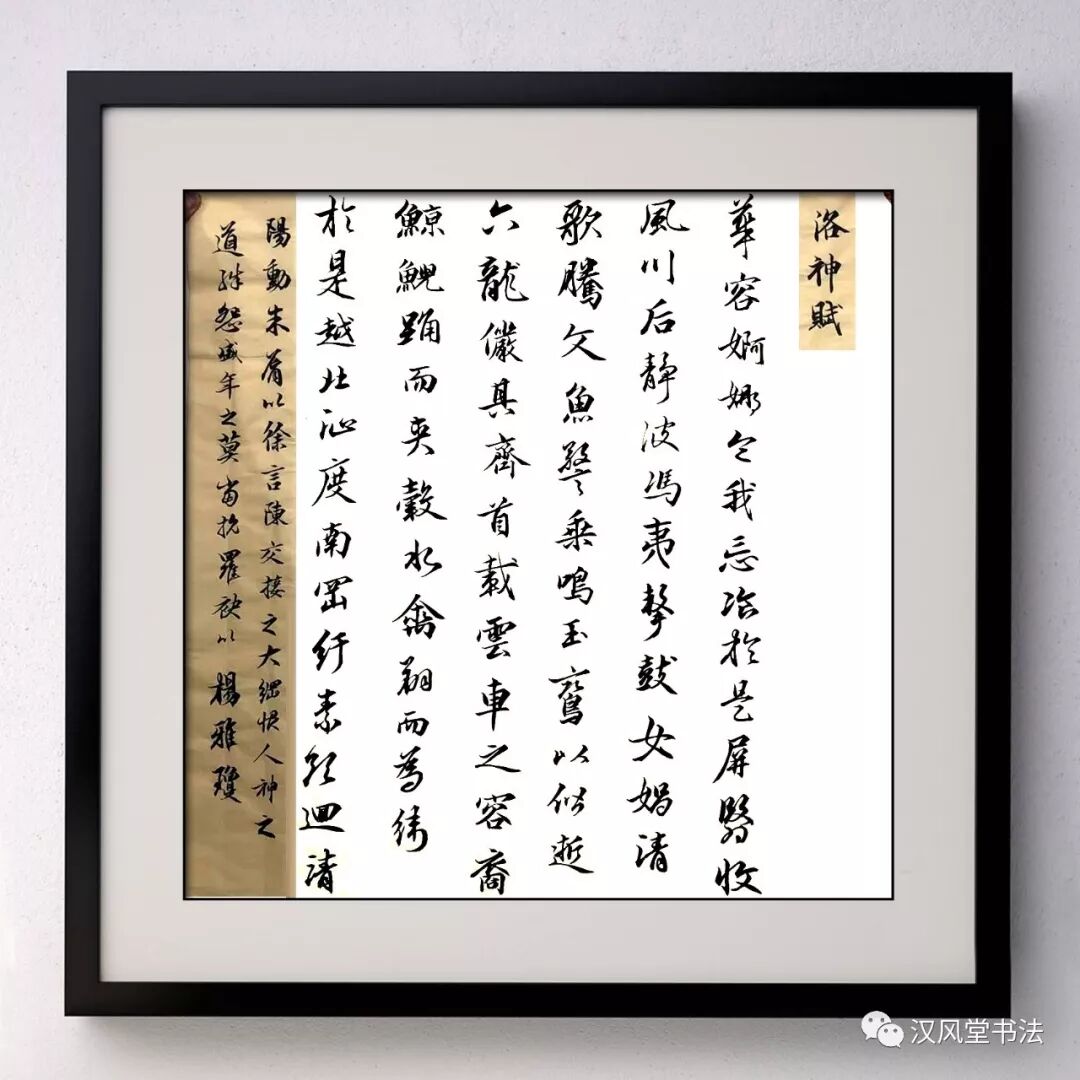 洛神賦
華容婀娜令我忘飡於是屏翳收
風川后靜波馮夷擊鼓女媧清
歌騰文魚警乘鳴玉鸞以偕逝
六龍儼其齊首載雲車之容裔
鯨鯢踊而夾轂水禽翔而為衛
於是越北沚度南岡紆素領迴清
陽動朱脣以徐言陳交接之大綱恨人神之
道殊怨盛年之莫當抗羅袂以 楊雅瓊
汉风堂书法